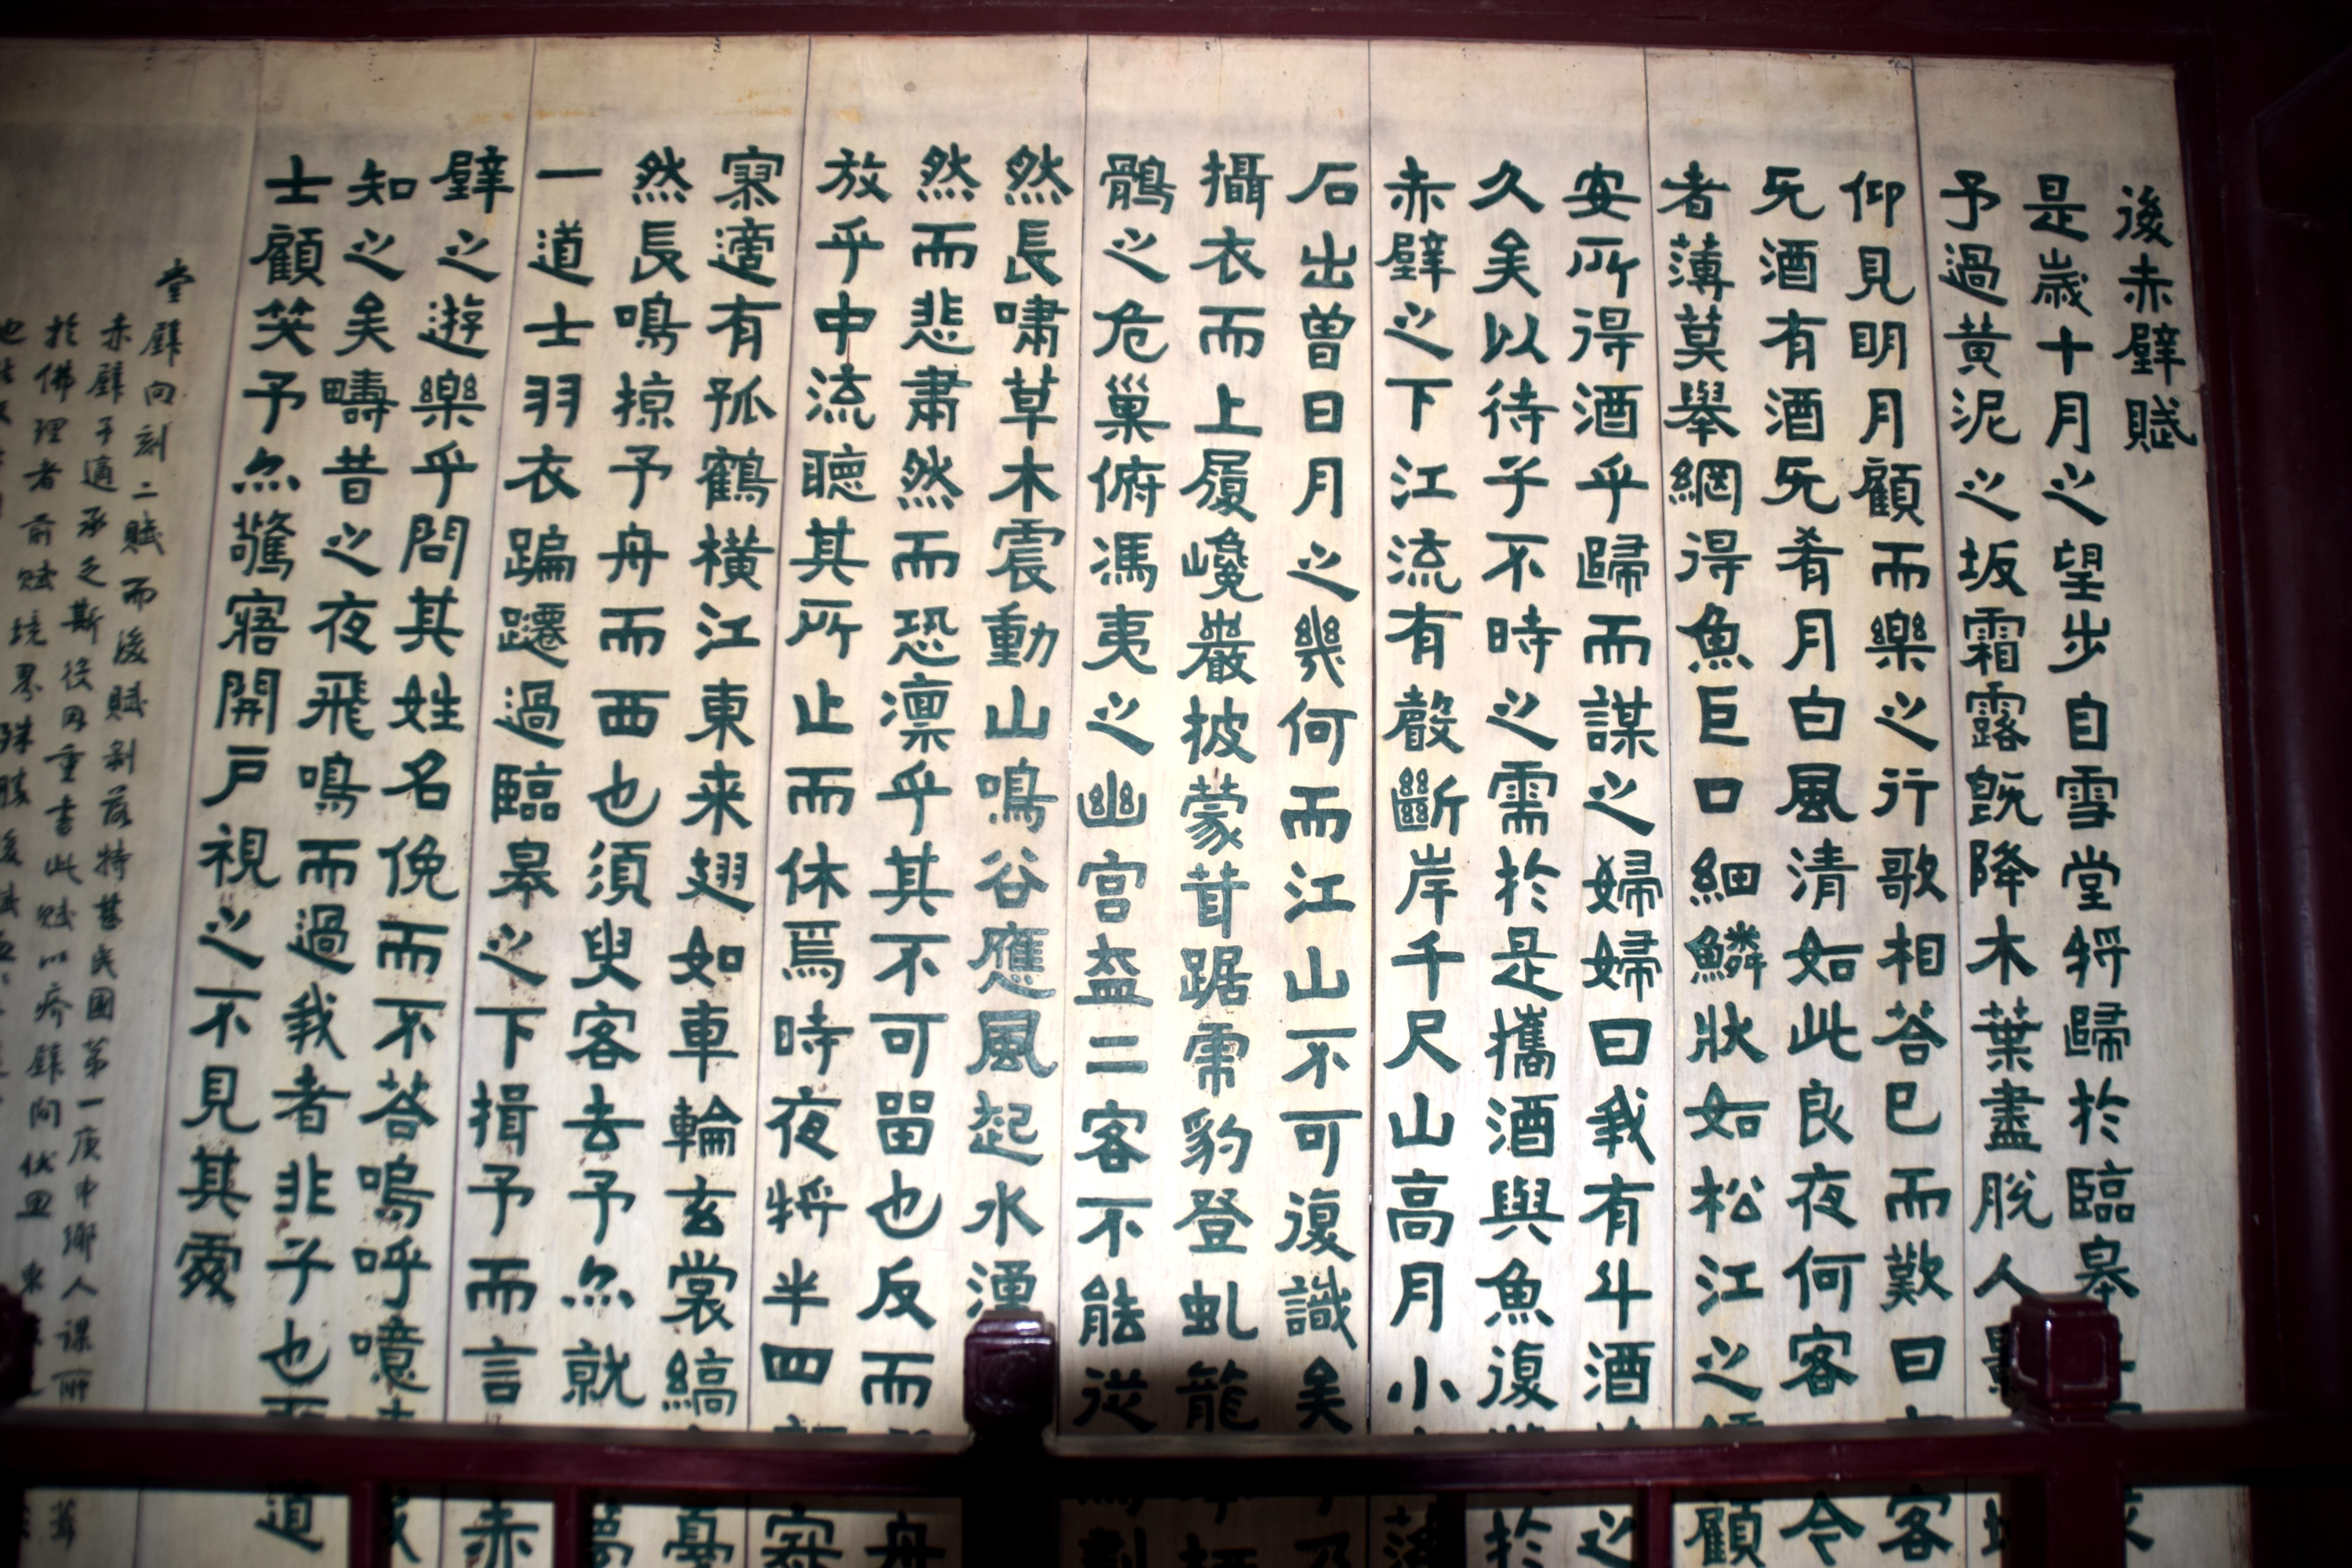 後赤壁賦
是歲十月之望步自雪堂將歸於臨皋
予過黃泥之坂霜露既降木葉盡脫人影
仰見明月顧而樂之行歌相荅已而歎曰客
无酒有酒无肴月白風清如此良夜何客今
者薄莫舉網得魚巨口細鱗狀如松江之顧
安所得酒乎歸而謀之婦婦曰我有斗酒之
久矣以待子不時之需於是攜酒與魚復遊於
赤壁之下江流有聲斷岸千尺山高月小落
石出曾日月之幾何而江山不可復識矣乃
攝衣而上履巉巖披蒙茸踞虎豹登虬龍
鶻之危巢俯馮夷之幽宮盍二客不能從焉劃
然長嘯草木震動山鳴谷應風起水湧
然而悲肅然而恐凜乎其不可留也反而舟
放乎中流聽其所止而休焉時夜將半四寂
寥適有孤鶴橫江東来翅如車輪玄裳縞戛
然長鳴掠予舟而西也須臾客去予亦就夢
一道士羽衣蹁躚過臨皋之下揖予而言赤
壁之遊樂乎問其姓名俛而不荅嗚呼噫我
知之矣疇昔之夜飛鳴而過我者非子也耶道
士顧笑予亦驚寤開戶視之不見其處
堂壁向刻二賦而後賦剝落特甚民國第一庚申鄉人謀所葺
赤壁予適承乏斯役因重書此賦以疥壁向
於佛理者前賦境界殊勝後賦